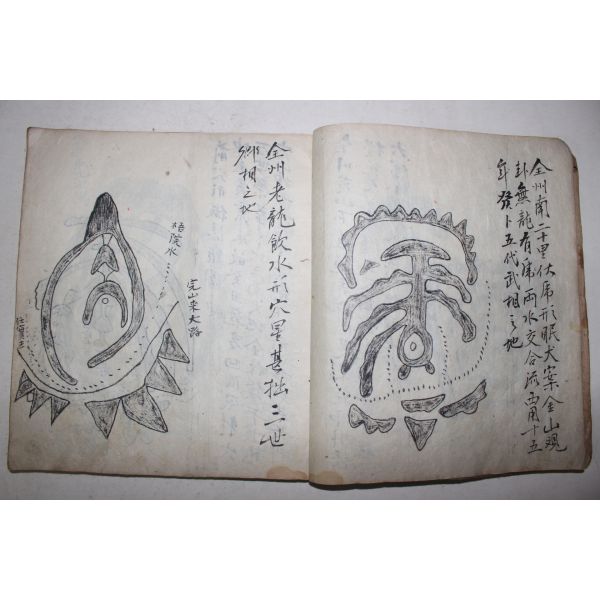 全州南二十里伏虎形眠犬案金山观
卦無龍有尾兩水交合流 用十五
年發卜五代武相之地
全州老龍飲水形穴星甚拙三世
卿相之地
梧院水
完山来大路
任實